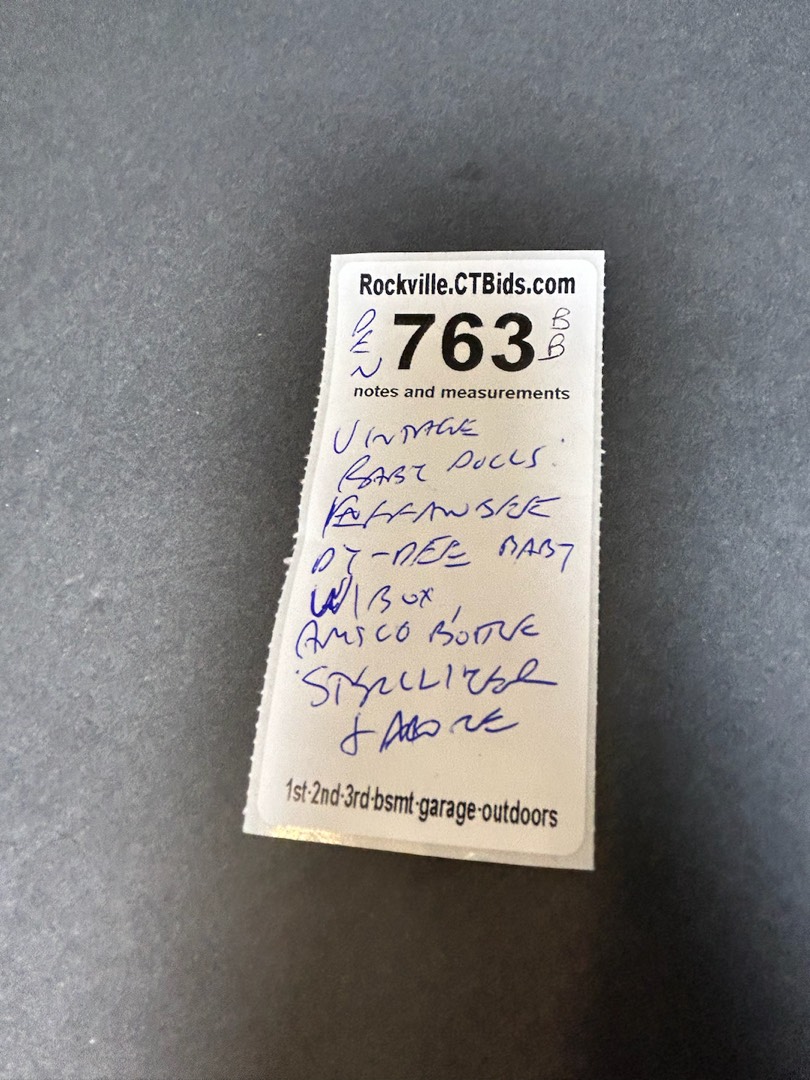 Rockville.CTBids.com
DEN 763 BB
notes and measurements
VINTAGE
BABY DOLLS.
EFFANBEE
DY-DEE BABY
W/BOX,
AMSCO BOTTLE
STERILIZER
& MORE
1st·2nd·3rd·bsmt·garage·outdoors